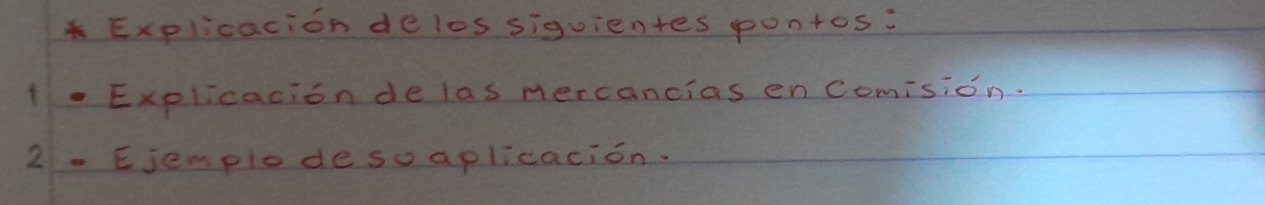 * Explicación de los siguientes puntos:
1 • Explicación de las Mercancías en Comisión.
2 • Ejemplo de su aplicación.